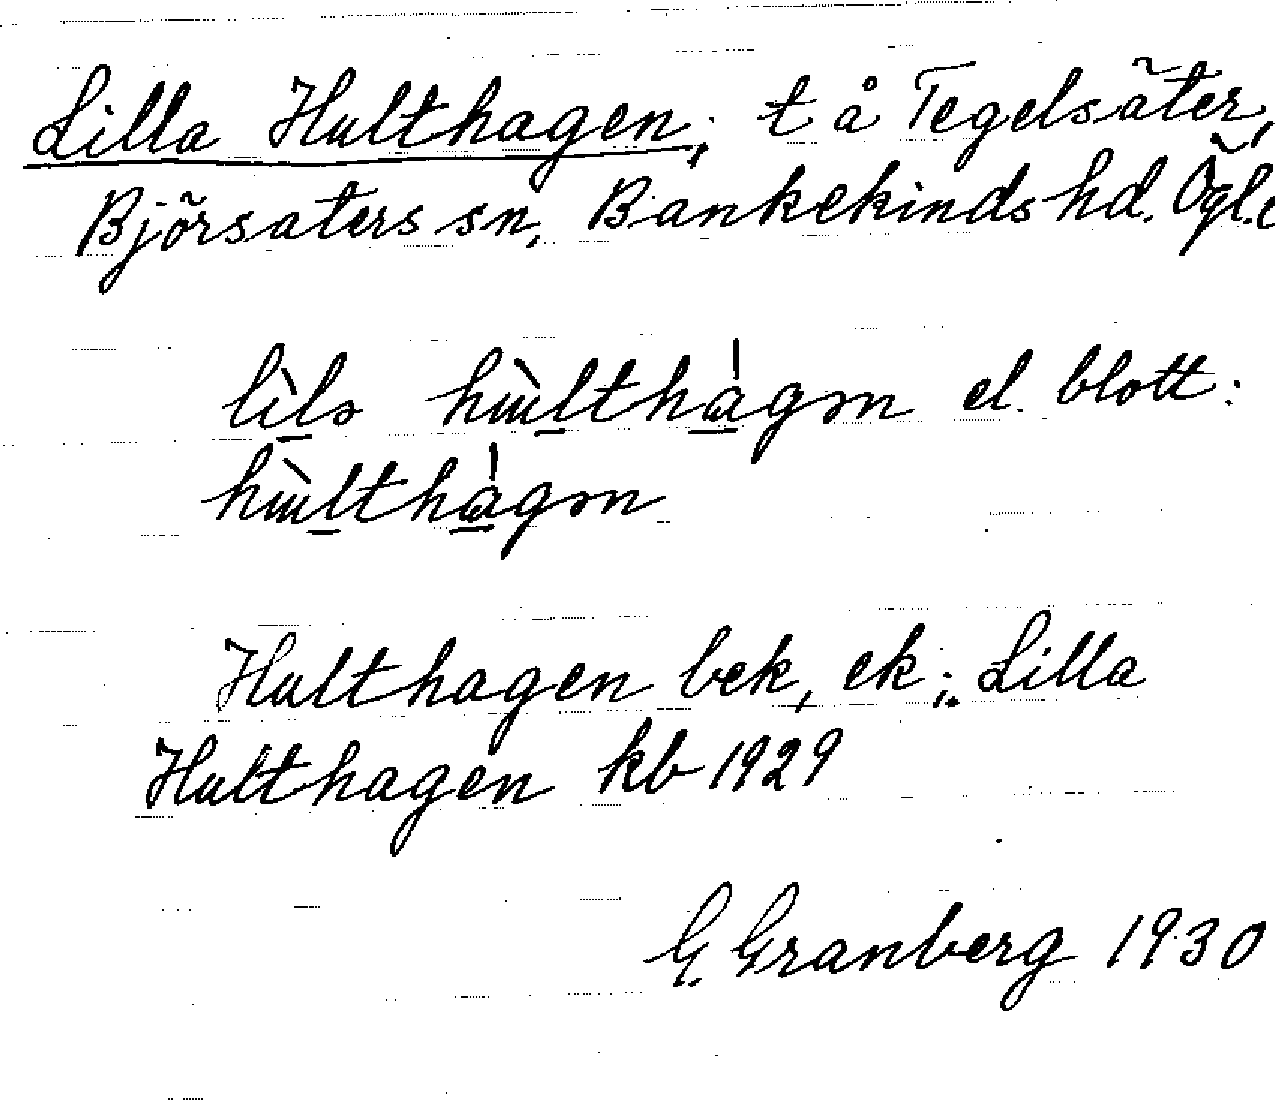 Lilla Hulthagen, t å Tegelsäter,
Björsaters sn, Bankekinds hd. Ögl.
el. blott:
Hulthagen bek, ek; Lilla
Hulthagen kb 1929
G. Granberg 1930